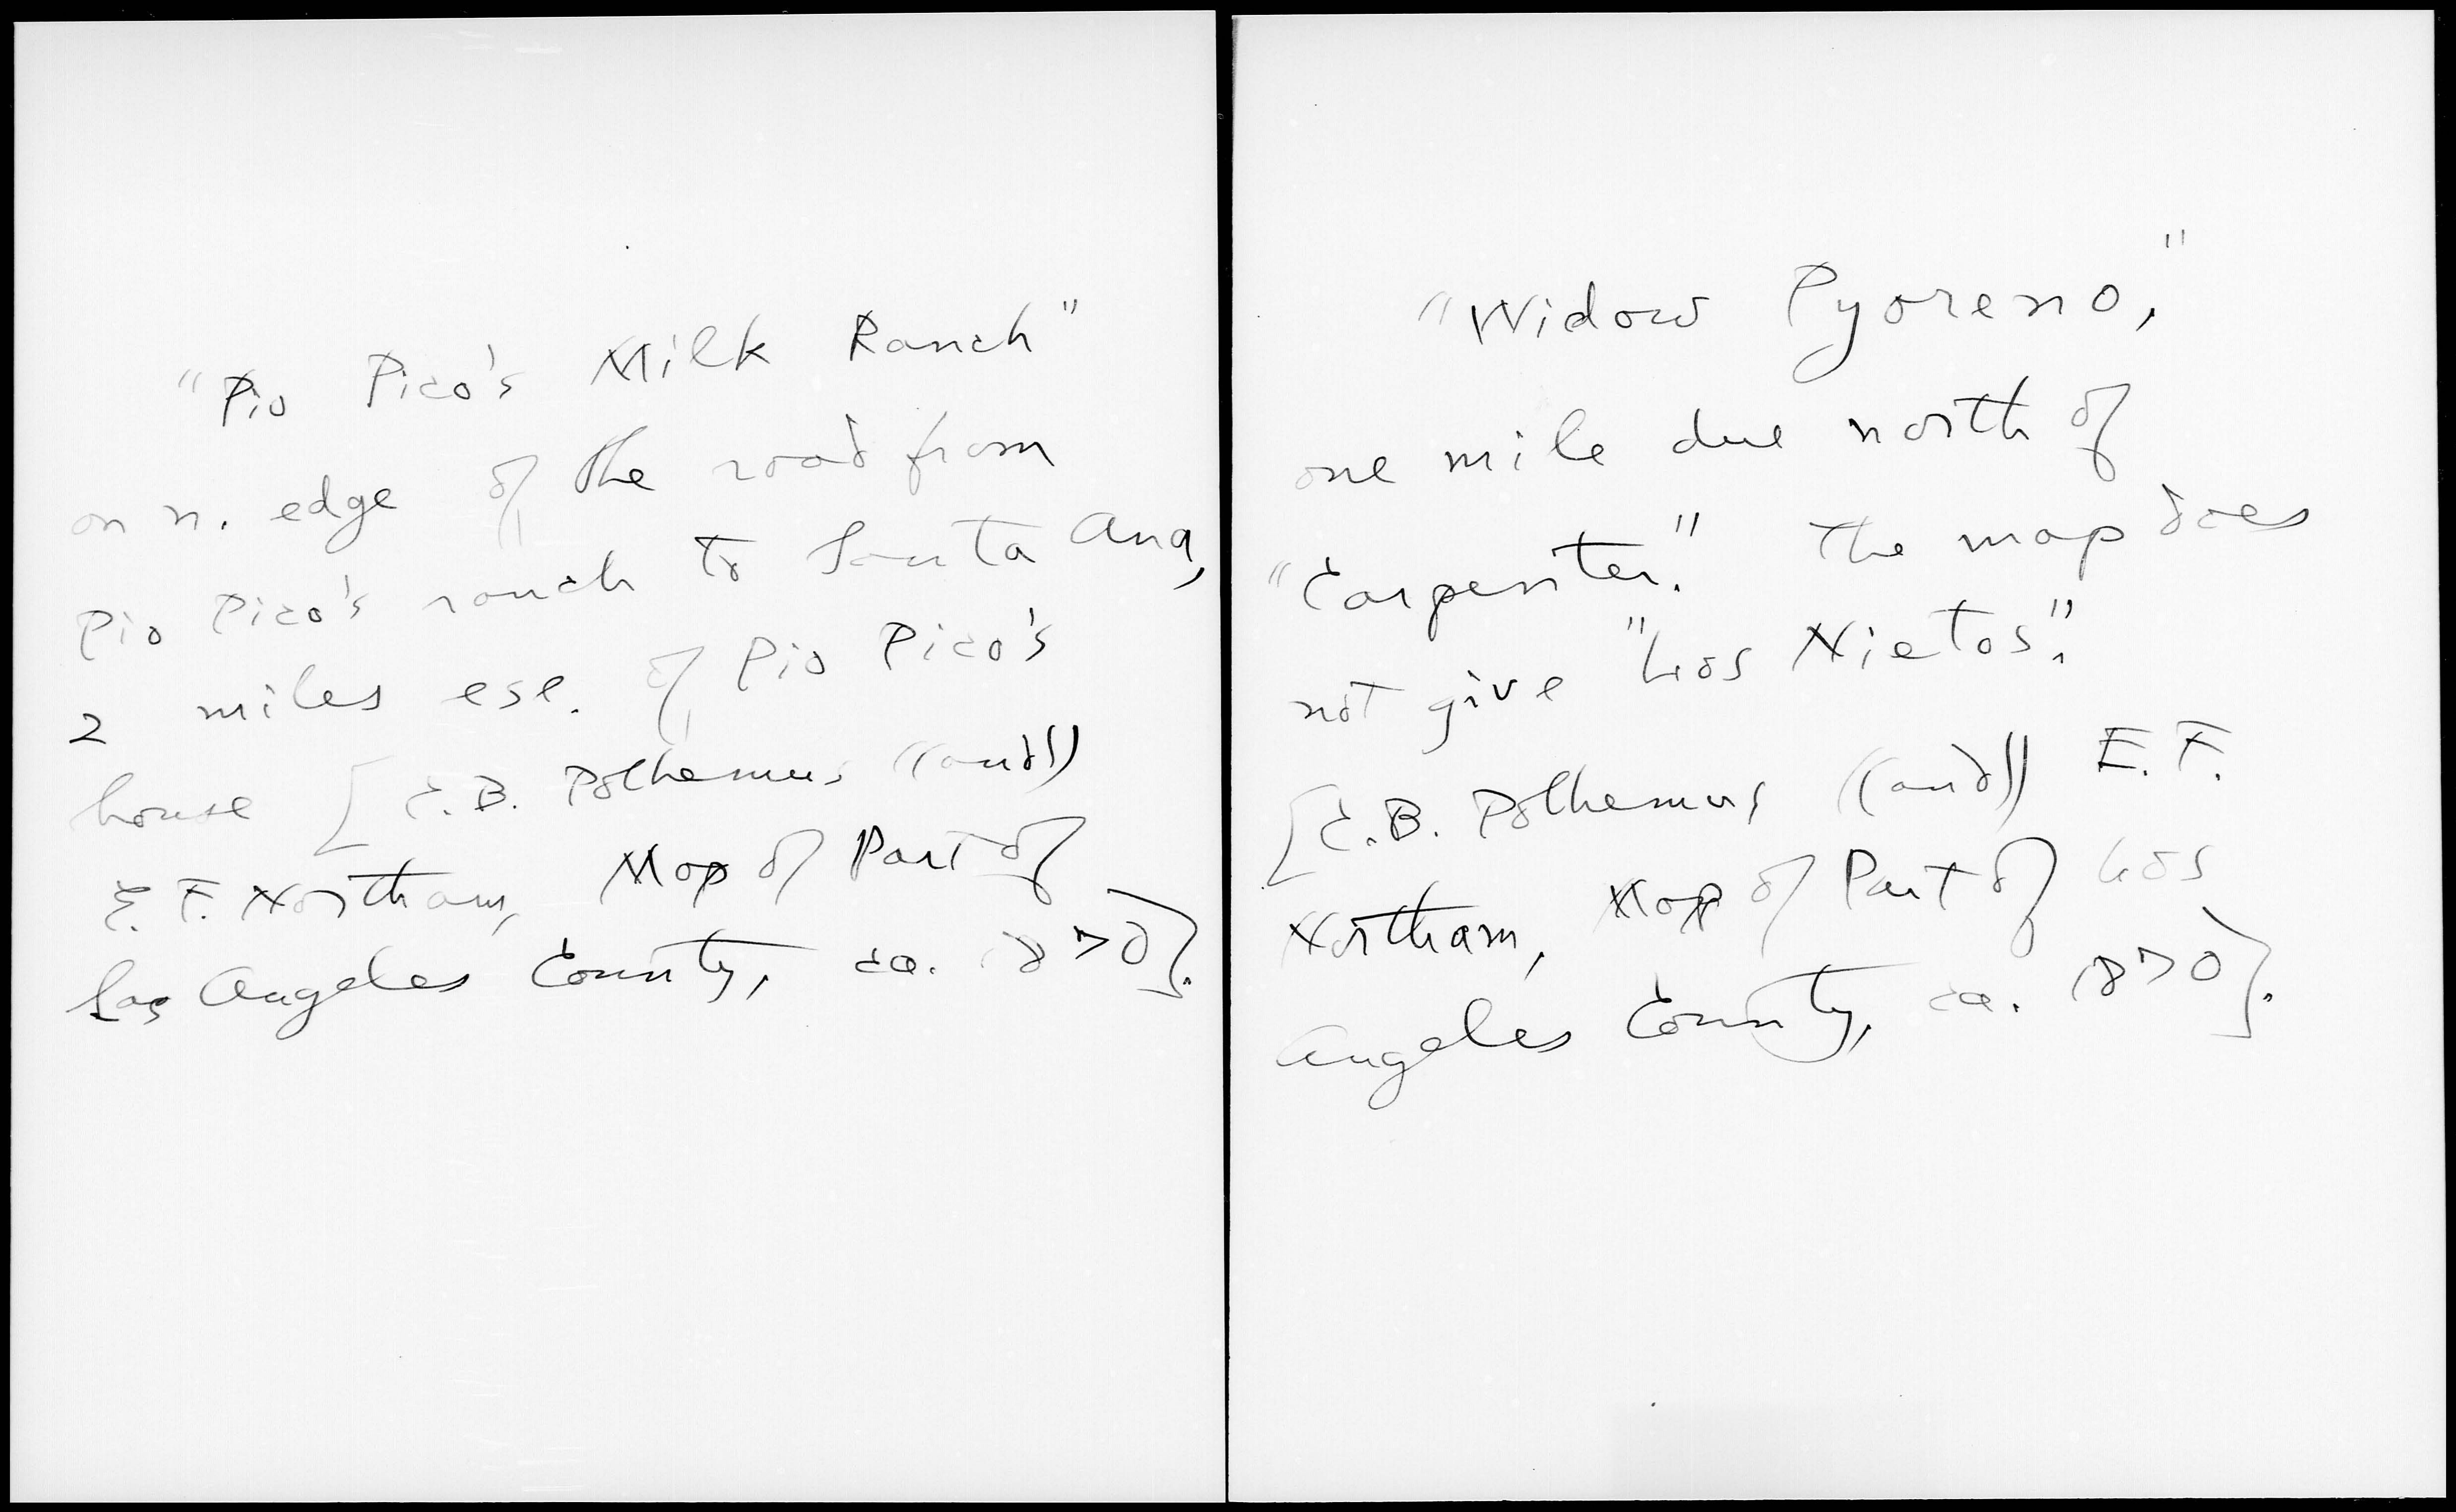 "Pio Pico's Milk Ranch"
on n. edge of the road from
Pio Pico's ranch to Santa Ana,
2 miles ese. of Pio Pico's
house [C.B. Polhemus ((and))
E. F. Northam, Map of Part of
Los Angeles County, ca. 1870].
"Widow Pyoreno,"
one mile due north of
"Carpenter." The map does
not give "Los Nietos".
[C.B. Polhemus ((and)) E. F.
Northam, Map of Part of Los
Angeles County, ca. 1870].